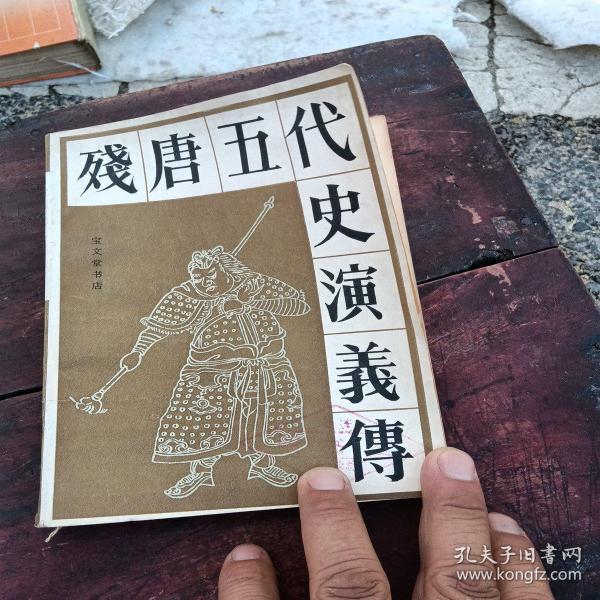 殘唐五代史演義傳
宝文堂书店
孔夫子旧書网
www.kongfz.com